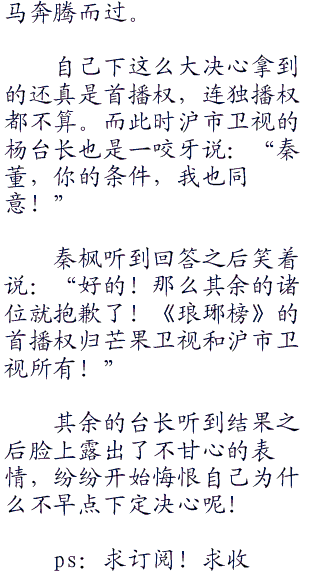 马奔腾而过。
自己下这么大决心拿到
的还真是首播权，连独播权
都不算。而此时沪市卫视的
杨台长也是一咬牙说：“秦
董，你的条件，我也同
意！”
秦枫听到回答之后笑着
说：“好的！那么其余的诸
位就抱歉了！《琅琊榜》的
首播权归芒果卫视和沪市卫
视所有！”
其余的台长听到结果之
后脸上露出了不甘心的表
情，纷纷开始悔恨自己为什
么不早点下定决心呢！
ps：求订阅！求收